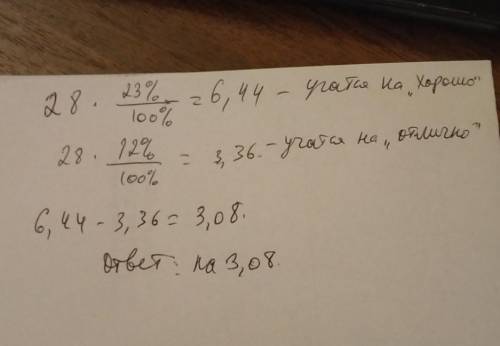 28 · 23%/100% = 6,44 – учатся на „хорошо"
28 · 12%/100% = 3,36. – учатся на „отлично"
6,44 – 3,36 = 3,08.
Ответ: на 3,08.